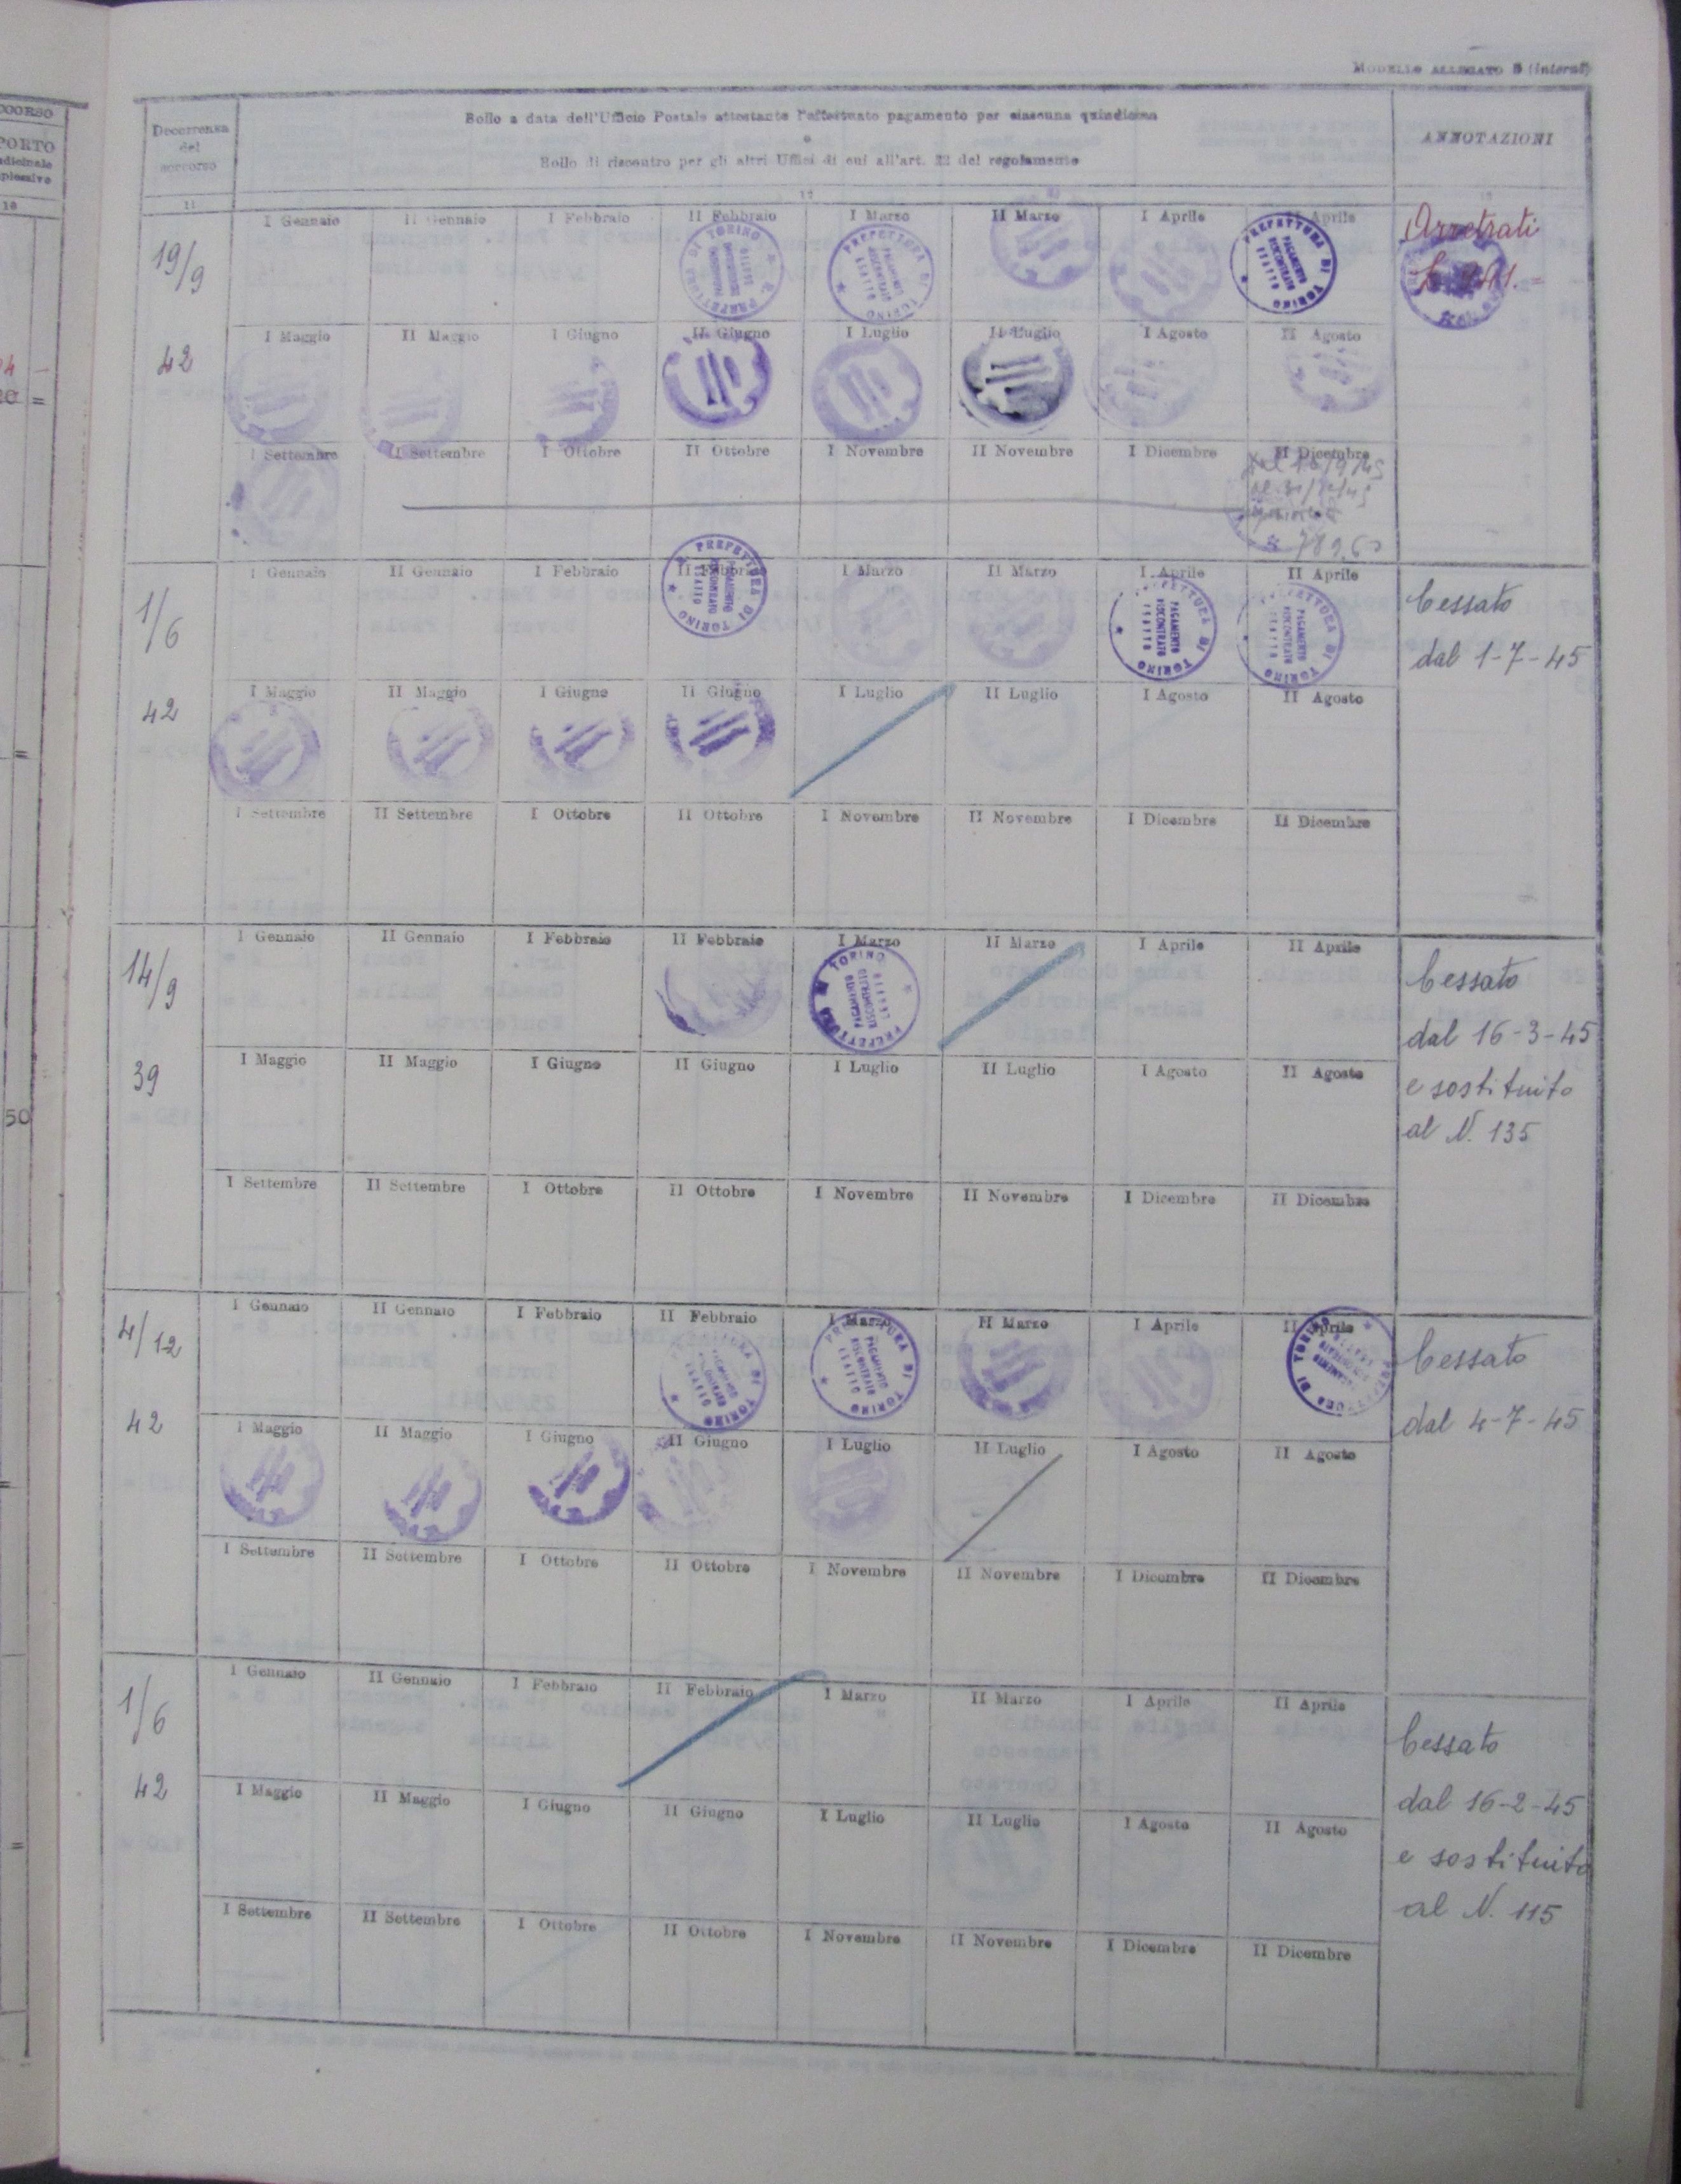 MODELLO ALLEGATO B (interni)
Decorrenza
del
soccorso
Bollo a data dell'Ufficio Postale attestante l'effettuato pagamento per ciascuna quindicina
e
Bollo di riscontro per gli altri Uffici di cui all'art. 22 del regolamento
ANNOTAZIONI
11
12
13
19/9
42
I Gennaio II Gennaio I Febbraio II Febbraio I Marzo II Marzo I Aprile II Aprile
PREFETTURA DI TORINO
PAGAMENTO
RISCONTRATO
ESATTO
Arretrati
I Maggio II Maggio I Giugno II Giugno I Luglio II Luglio I Agosto II Agosto
I Settembre II Settembre I Ottobre II Ottobre I Novembre II Novembre I Dicembre II Dicembre
1/6
42
I Gennaio II Gennaio I Febbraio II Febbraio I Marzo II Marzo I Aprile II Aprile
Cessato
dal 1-7-45
I Maggio II Maggio I Giugno II Giugno I Luglio II Luglio I Agosto II Agosto
I Settembre II Settembre I Ottobre II Ottobre I Novembre II Novembre I Dicembre II Dicembre
14/9
39
I Gennaio II Gennaio I Febbraio II Febbraio I Marzo II Marzo I Aprile II Aprile
Cessato
dal 16-3-45
e sostituito
al N. 135
I Maggio II Maggio I Giugno II Giugno I Luglio II Luglio I Agosto II Agosto
I Settembre II Settembre I Ottobre II Ottobre I Novembre II Novembre I Dicembre II Dicembre
4/12
42
I Gennaio II Gennaio I Febbraio II Febbraio I Marzo II Marzo I Aprile II Aprile
Cessato
dal 4-7-45
I Maggio II Maggio I Giugno II Giugno I Luglio II Luglio I Agosto II Agosto
I Settembre II Settembre I Ottobre II Ottobre I Novembre II Novembre I Dicembre II Dicembre
1/6
42
I Gennaio II Gennaio I Febbraio II Febbraio I Marzo II Marzo I Aprile II Aprile
Cessato
dal 16-2-45
e sostituito
al N. 115
I Maggio II Maggio I Giugno II Giugno I Luglio II Luglio I Agosto II Agosto
I Settembre II Settembre I Ottobre II Ottobre I Novembre II Novembre I Dicembre II Dicembre